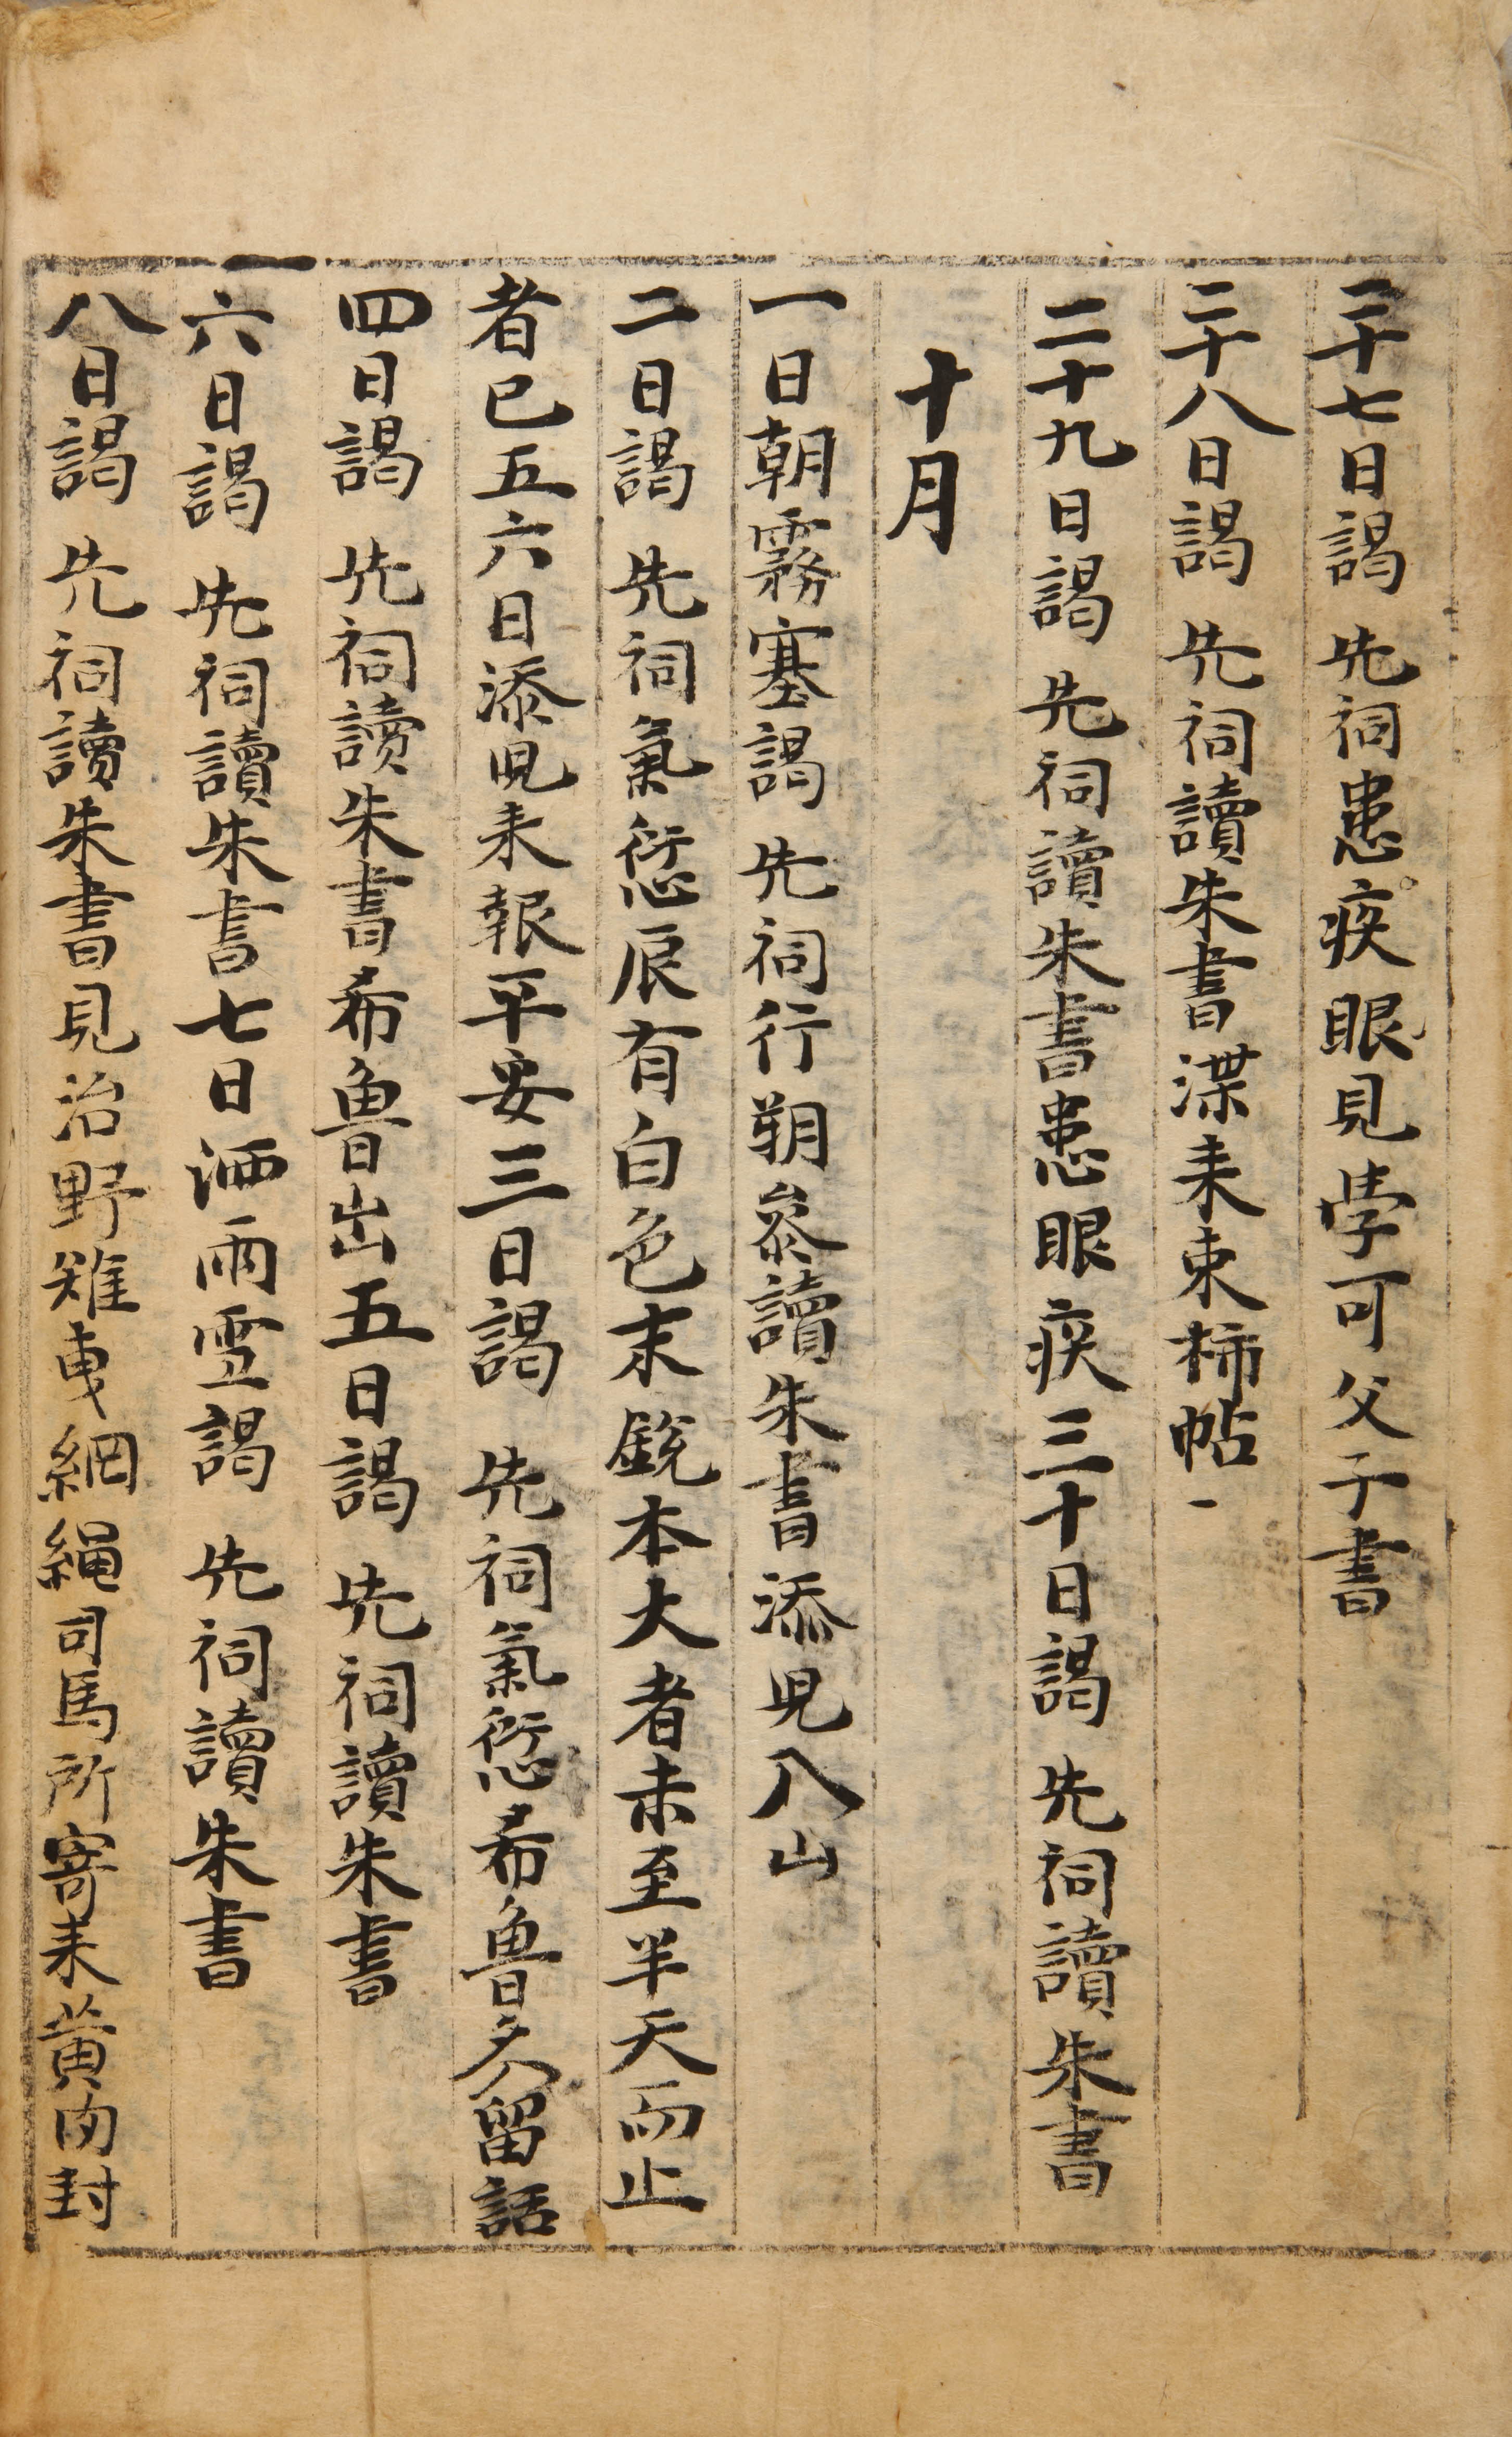 二十七日謁 先祠患疾眼見學可父子書
二十八日謁 先祠讀朱書渫来束柿帖一
二十九日謁 先祠讀朱書患眼疾三十日謁 先祠讀朱書
十月
一日朝霧塞謁 先祠行朔叅讀朱書添児入山
二日謁 先祠氣愆辰有白色末銳本大者未至半天而止
者已五六日添児来報平安三日謁 先祠氣愆希魯久留話
四日謁 先祠讀朱書希魯出五日謁 先祠讀朱書
六日謁 先祠讀朱書七日洒雨雪謁 先祠讀朱書
八日謁 先祠讀朱書見治野雉曳網繩司馬所寄来黄肉封